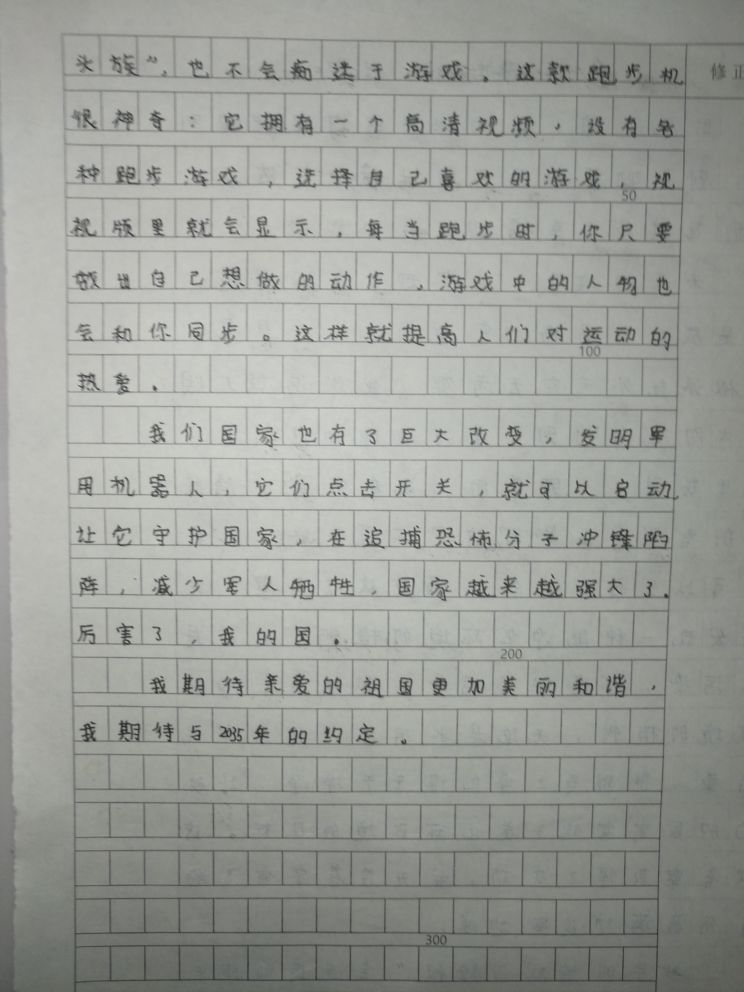 头族”,也不会痴迷于游戏。这款跑步机
修正
很神奇:它拥有一个高清视频,设有各
种跑步游戏,选择自己喜欢的游戏,视
50
视频里就会显示,每当跑步时,你只要
做出自己想做的动作,游戏中的人物也
会和你同步。这样就提高人们对运动的
100
热爱。
我们国家也有了巨大改变,发明军
用机器人,它们点击开关,就可以启动
让它守护国家,在追捕恐怖分子冲锋陷
阵,减少军人牺牲,国家越来越强大了.
厉害了,我的国。
200
我期待亲爱的祖国更加美丽和谐,
我期待与2035年的约定。
300